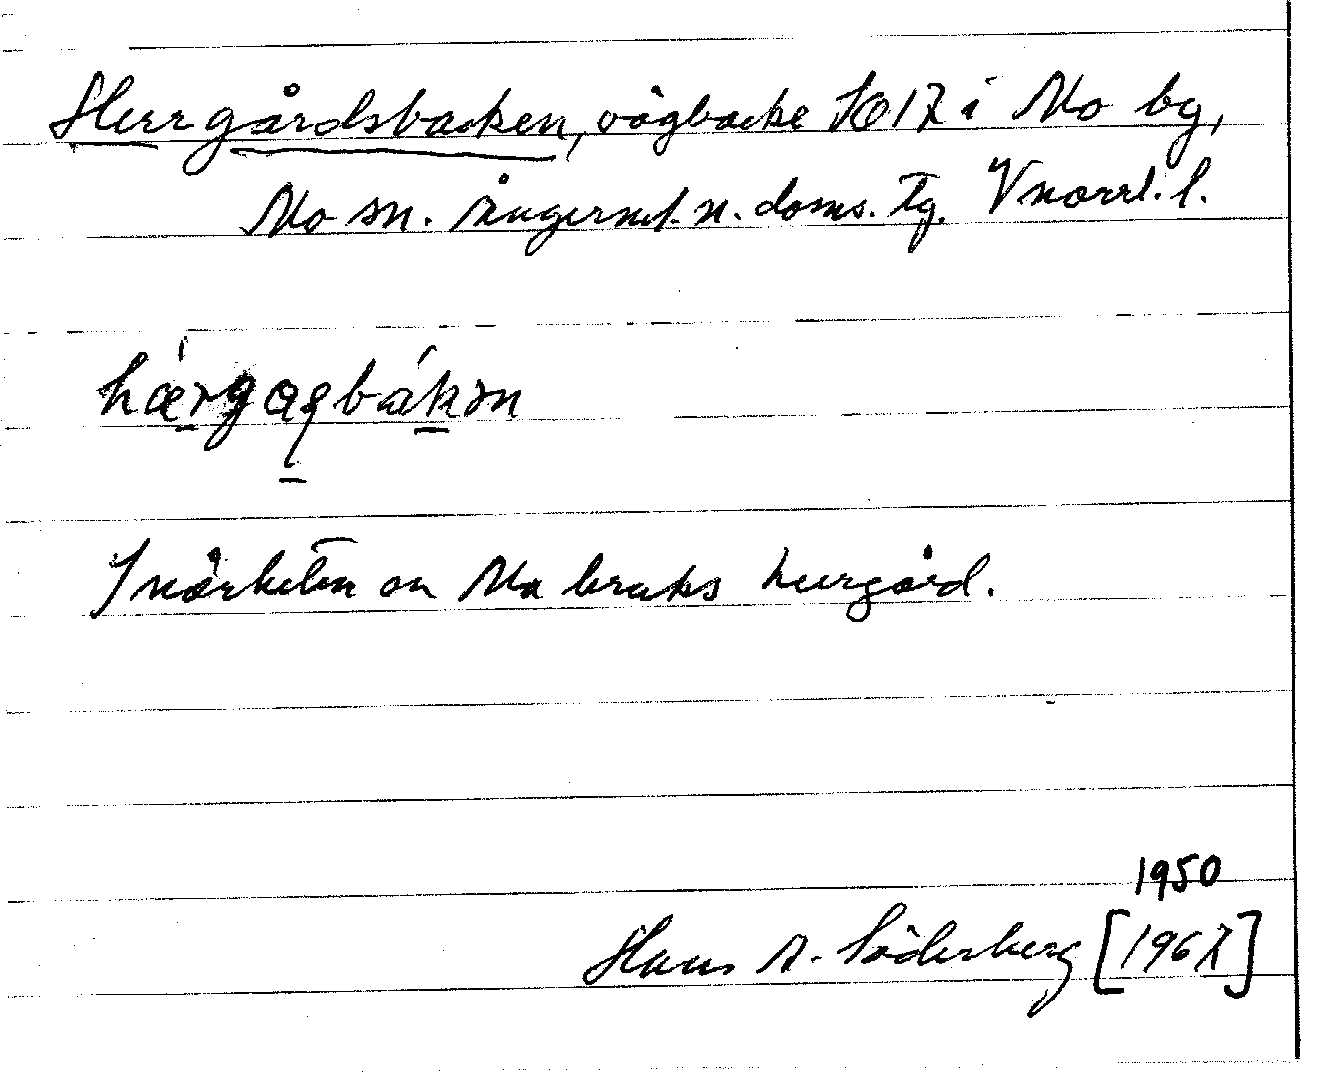 Herrgårdsbacken, vägbacke SO 17 i Mo by,
Mo sn. Ångerml. n. doms. tg. Vnorrl. l.
hærgaqbákən
I närheten av Mo bruks herrgård.
1950
Hans A. Söderberg [1967]